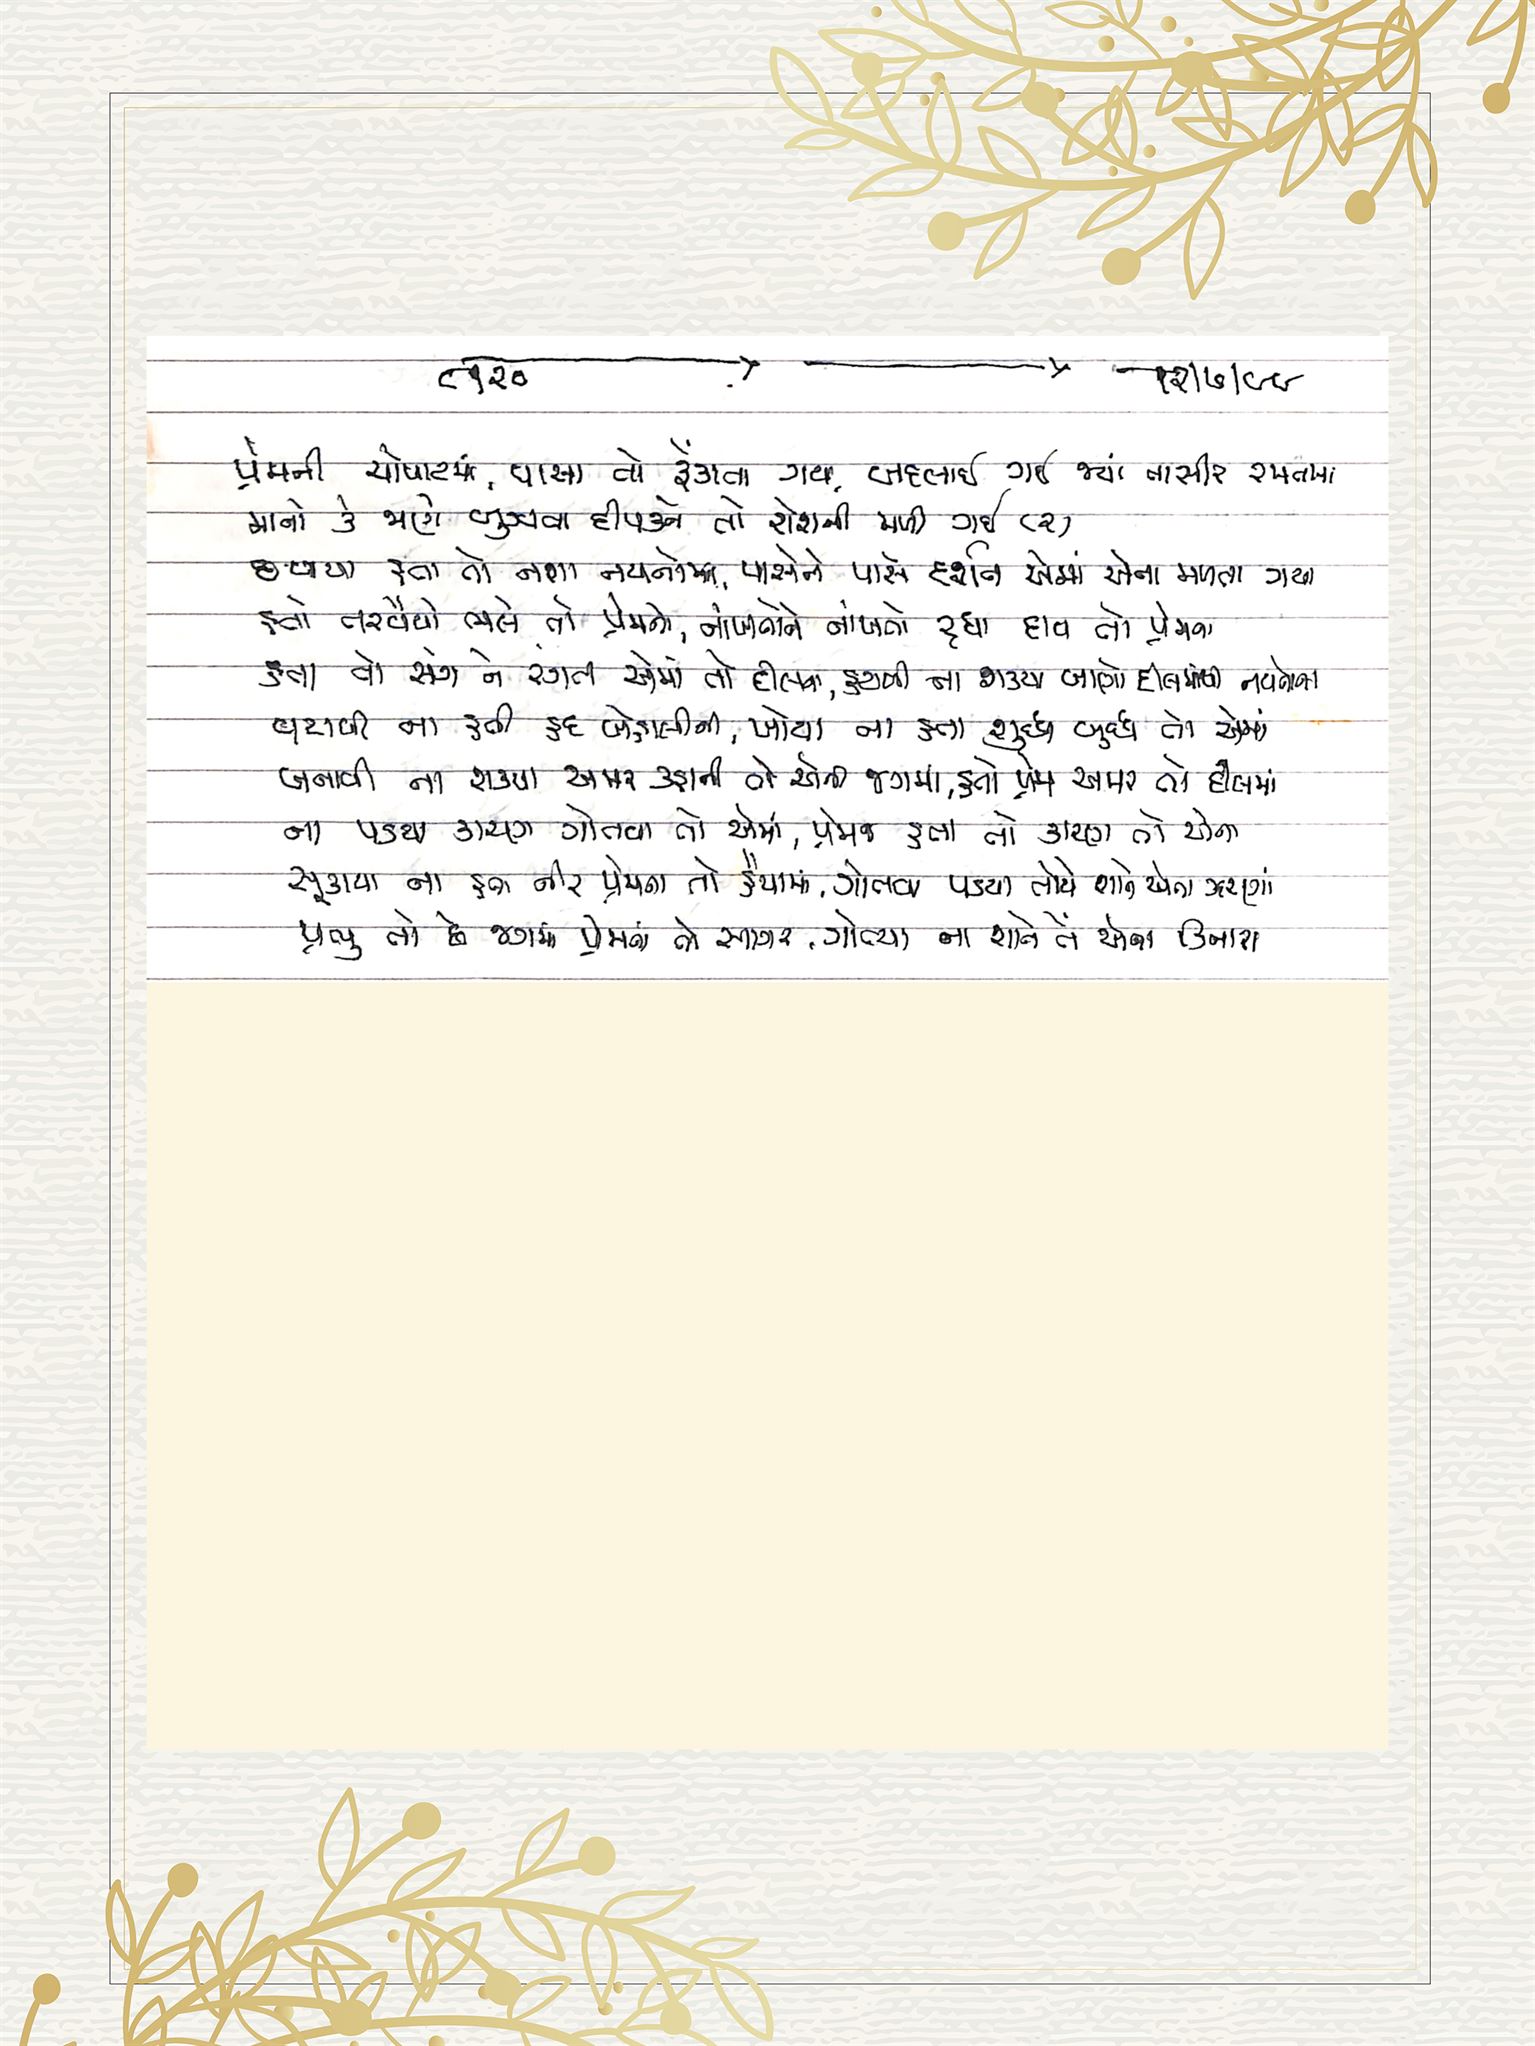 ૮૧૨૦ ૧૨/૭/૯૯
પ્રેમની ચોપાટમાં, પાસા તો ફેંકાતા ગયા, બદલાઈ ગઈ જ્યાં તાસીર રમતમાં
માનો કે ભાગે બુઝાવા દીપકને તો રોશની મળી ગઈ (૨)
છવાયા હતા તો નશા નયનોમાં, પાસેને પાસે દર્શન એમાં એના મળતા ગયા
હતો તરવૈયો ભલે તો પ્રેમનો, નાંખનોને નાંખતો રહ્યા દાવ તો પ્રેમના
હતા તો સંગ ને રંગત એમાં તો દીલના, હટાવી ના શક્યા બાણો દીલમાંથી નયનોના
બતાવી ના હતી હદ બેહાલીની, ખોયા ના હતા શુદ્ધ બુદ્ધ તો એમાં
બનાવી ના શક્યા અમર કહાની તો એની જગમાં, હતો પ્રેમ અમર તો દીલમાં
ના પડયા કારણ ગોતવા તો એમાં, પ્રેમજ હતા તો કારણ તો એના
સૂકાયા ના હતા નીર પ્રેમના તો હૈયામાં, ગોતવા પડયા તોયે શાને એના ઝરણાં
પ્રભુ તો છે જગમાં પ્રેમનો તો સાગર, ગોત્યા ના શાને તેં એના કિનારા